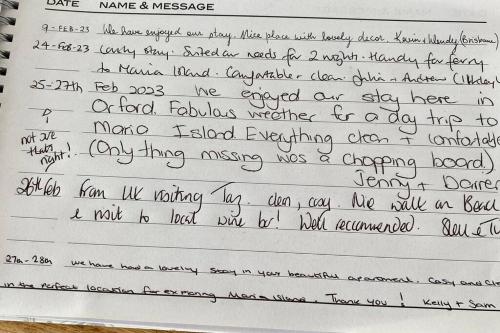 DATE NAME & MESSAGE
9-FEB-23 We have enjoyed our stay. Nice place with lovely decor. Kevin + Wendy (Brisbane)
24-Feb-23 Lovely stay. Suited our needs for 2 nights. Handy for ferry
to Maria Island. Comfortable + clean. Julie + Andrew
25-27th Feb 2023 We enjoyed our stay here in
Orford. Fabulous weather for a day trip to
Maria Island. Everything clean + comfortable
not are thats right!
(Only thing missing was a chopping board).
Jenny + Darren
26th Feb from UK visiting Taz. clean, cosy. Nice walk on Beach
& visit to local wine bar! Well recommended.
27th-28th we have had a lovely stay in your beautiful apartment. Cosy and
in the perfect location for exploring Maria Island. Thank you! Kelly + Sam